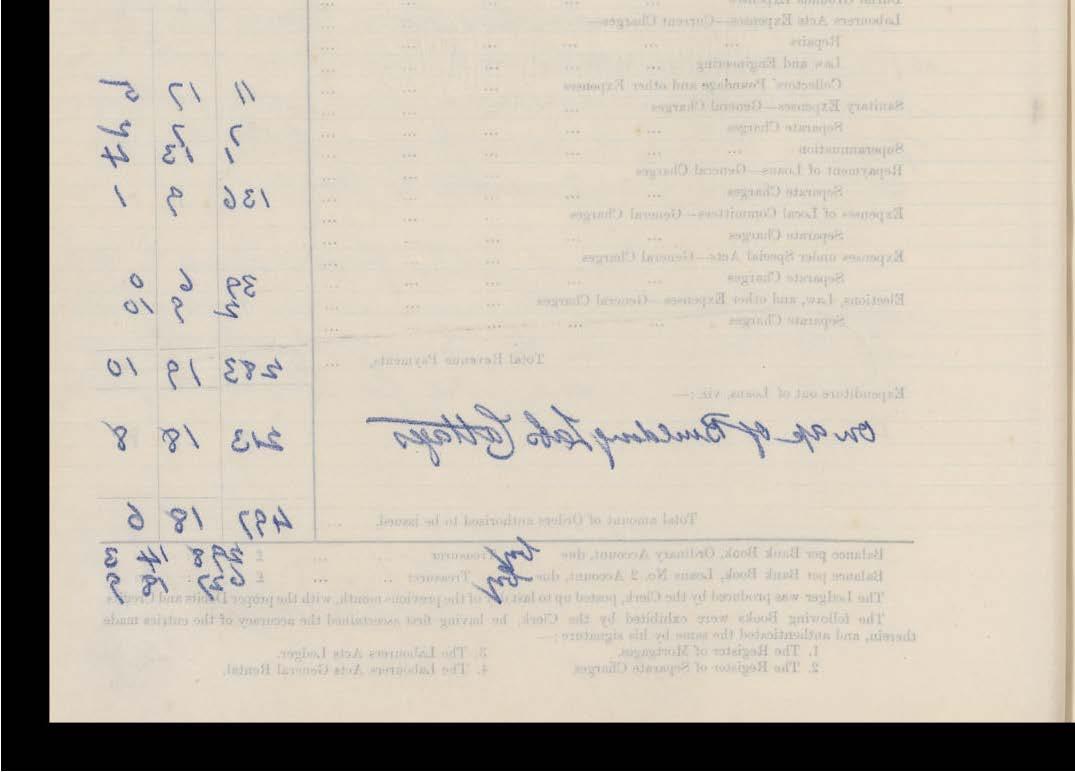 Labourers Acts Expenses—Current Charges—
Repairs ... ... ... ... ...
Law and Engineering ... ... ... ...
Collectors' Poundage and other Expenses ... ... ... 11 17
Sanitary Expenses—General Charges ... ... ... ...
Separate Charges ... ... ... ... ...
Superannuation ... ... ... ... ...
Repayment of Loans—General Charges ... ... ...
Separate Charges ... ... ... ... ... 136 9 1
Expenses of Local Committees—General Charges ... ... ...
Separate Charges ... ... ... ... ...
Expenses under Special Acts—General Charges ... ... ...
Separate Charges ... ... ... ... ... 39 6 0
Elections, Law, and other Expenses—General Charges ... ... 4 9 10
Separate Charges ... ... ... ... ...
Total Revenue Payments, ... 283 19 10
Expenditure out of Loans, viz.:—
On a/c of Building Lab Cottages 213 18 8
Total amount of Orders authorised to be issued. ... 497 18 6
Balance per Bank Book, Ordinary Account, due Treasurer ... ... £
Balance per Bank Book, Loans No. 2 Account, due Treasurer ... ... £
The Ledger was produced by the Clerk, posted up to last day of the previous month, with the proper Debits and Credits
The following Books were exhibited by the Clerk, he having first ascertained the accuracy of the entries made
therein, and authenticated the same by his signature:—
1. The Register of Mortgages. 3. The Labourers Acts Ledger.
2. The Register of Separate Charges 4. The Labourers Acts General Rental.